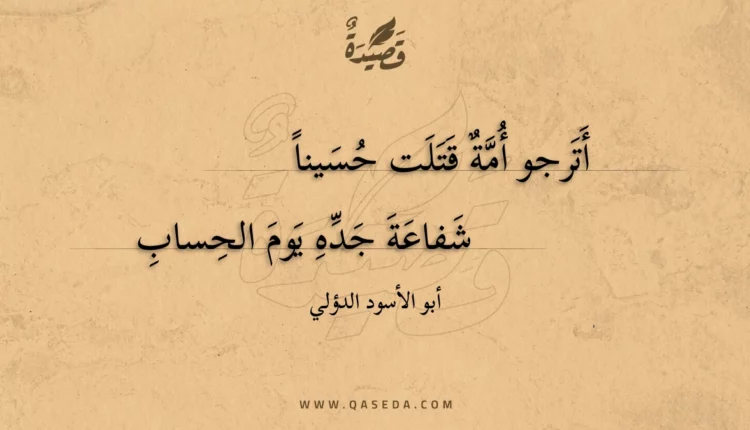 قَصِيْدَةٌ
أَتَرجو أُمَّةٌ قَتَلَت حُسَيناً
شَفاعَةَ جَدِّهِ يَومَ الحِسابِ
أبو الأسود الدؤلي
WWW.QASEDA.COM